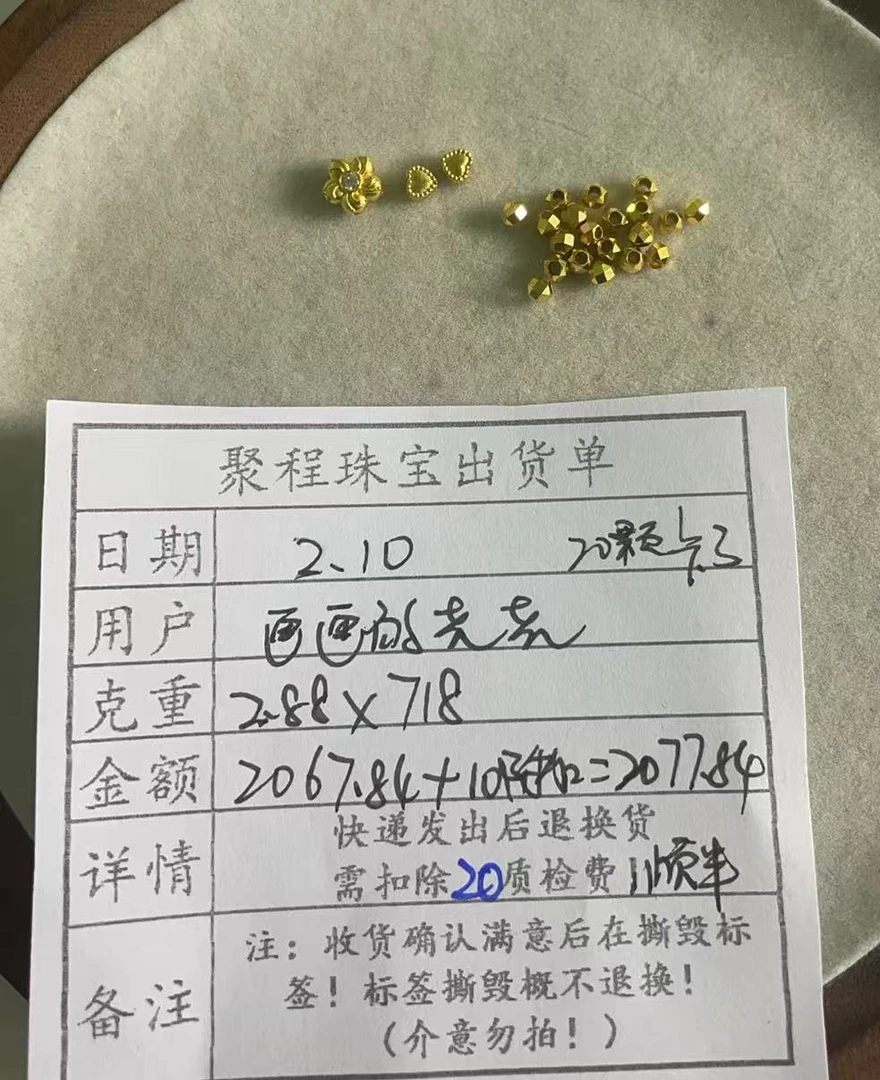 聚程珠宝出货单
日期 2.10 20颗
用户 画画的
克重 2.88×718
金额 2067.84+10 =2077.84
详情 快递发出后退换货
需扣除20质检费 顺丰
备注 注：收货确认满意后在撕毁标
签！标签撕毁概不退换！
（介意勿拍！）